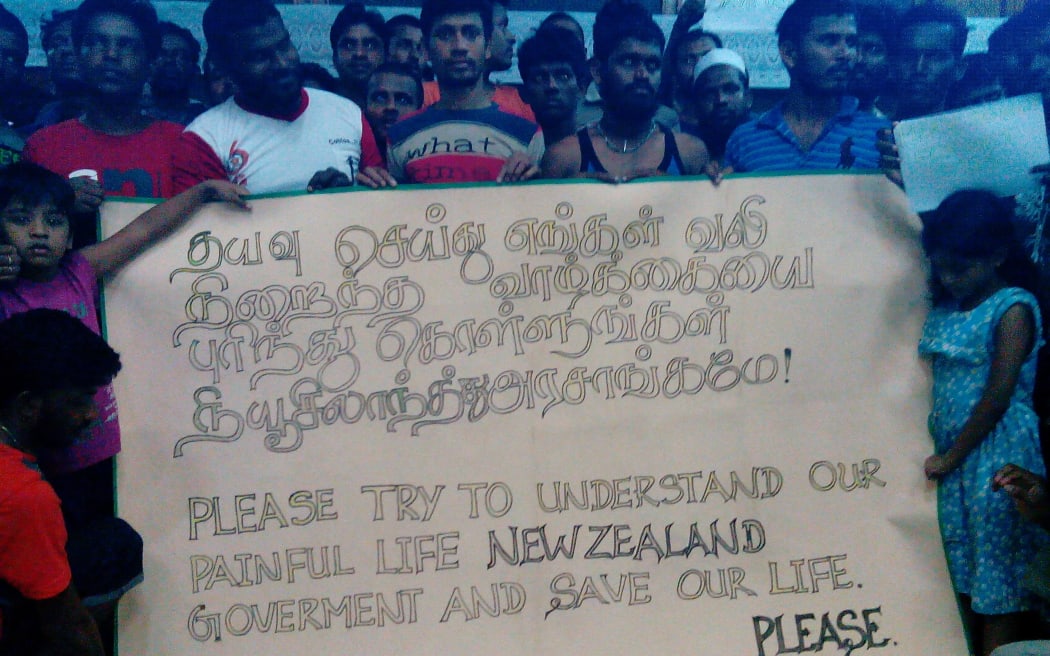 தயவு செய்து எங்கள் வலி
நிறைந்த வாழ்க்கையை
புரிந்து கொள்ளுங்கள்
நியூசிலாந்த்துஅரசாங்கமே!
PLEASE TRY TO UNDERSTAND OUR
PAINFUL LIFE NEW ZEALAND
GOVERMENT AND SAVE OUR LIFE.
PLEASE.
what
time